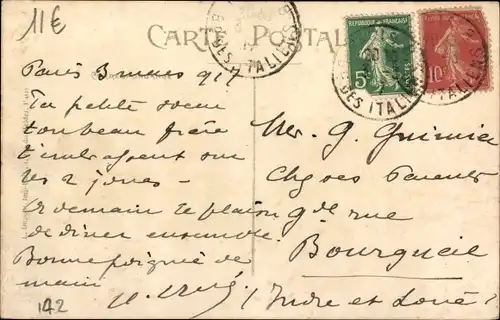 11€
CARTE POSTALE
RÉPUBLIQUE FRANÇAISE
5
10
Bd DES ITALIENS
Paris 3 mars 917
Ta petite sœur
ton beau frère
t'embrassent sur
les 2 joues
A demain le plaisir
de dîner ensemble
Bonne poignée de
main
Mr. G.
Chez ses Parents
9 rue
Bourgueil
(Indre et Loire)
142